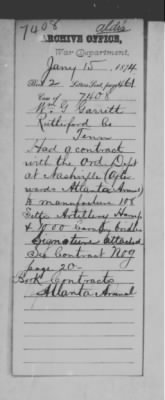 7408
ARCHIVE OFFICE,
War Department,
Jany 15, 1874
Book 2 Letters Sent page 461
View of
7408
Wm G Garrett
Rutherford Co
Tenn
Had a contract
with the Ord Dept
at Nashville (after
wards Atlanta Arsenal)
to manufacture 108
Setts Artillery
&
Signature attached
See Contract No 9
page 20-
Book Contracts
Atlanta Arsenal